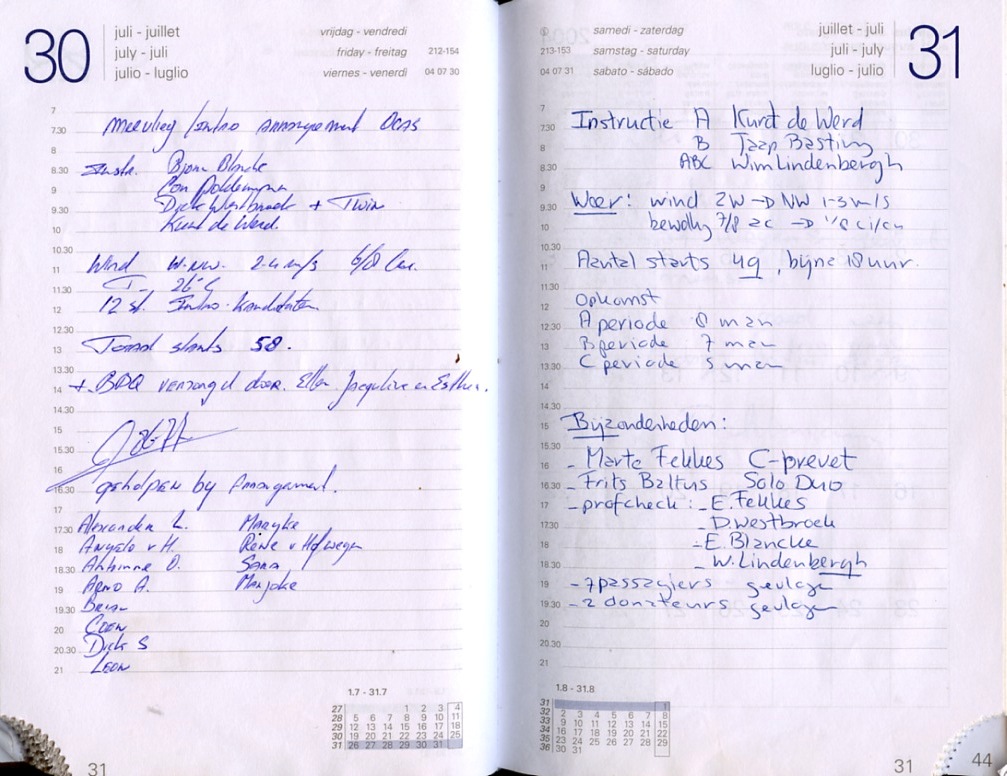 30
juli - juillet
july - juli
julio - luglio
vrijdag - vendredi
friday - freitag 212-154
viernes - venerdi 04 07 30
7
7.30 Meevlieg/Intro arrangement OCAS
8
8.30 Instr. Bjorn Blancke
9
9.30 Dick Westbroek + Twin
10 Kurt de Werd.
10.30
11 Wind W-NW. 2-4 m/s 6/8 Cu.
11.30 T 26°C
12 12 st. Intro-kandidaten.
12.30
13 Totaal starts 58.
13.30
14 + BBQ verzorgd door. Ellen, Jacqueline en Esther.
14.30
15
15.30
16
16.30 geholpen by Arrangement.
17
17.30 Alexander L. Maryke
18 Angelo v H. Renée v Hofwegen
18.30 O. Sana
19 Arno A. Marjoke
19.30 Brian
20 Coen
20.30 Dick S
21 Leon
1.7 - 31.7
27 1 2 3 4
28 5 6 7 8 9 10 11
29 12 13 14 15 16 17 18
30 19 20 21 22 23 24 25
31 26 27 28 29 30 31
31
samedi - zaterdag
213-153 samstag - saturday
04 07 31 sabato - sábado
juillet - juli
juli - july
luglio - julio
31
7
7.30 Instructie A Kurt de Werd
8 B Jaap Basting
8.30 ABC Wim Lindenbergh
9
9.30 Weer: wind ZW → NW 1-3 m/s
10 bewolkg 7/8 ac → 1/8 ci/cu
10.30
11 Aantal starts 49, bijna 18 uur.
11.30
12 Opkomst
12.30 A periode 8 man
13 B periode 7 man
13.30 C periode 5 man
14
14.30
15 Bijzonderheden:
15.30
16 - Marte Fekkes C-prevet
16.30 - Frits Baltus Solo Duo
17 - profcheck: - E. Fekkes
17.30 - D. Westbroek
18 - E. Blancke
18.30 - W. Lindenbergh
19 - 7 passagiers gevlogen
19.30 - 2 donateurs gevlogen
20
20.30
21
1.8 - 31.8
31 1
32 2 3 4 5 6 7 8
33 9 10 11 12 13 14 15
34 16 17 18 19 20 21 22
35 23 24 25 26 27 28 29
36 30 31
31
44